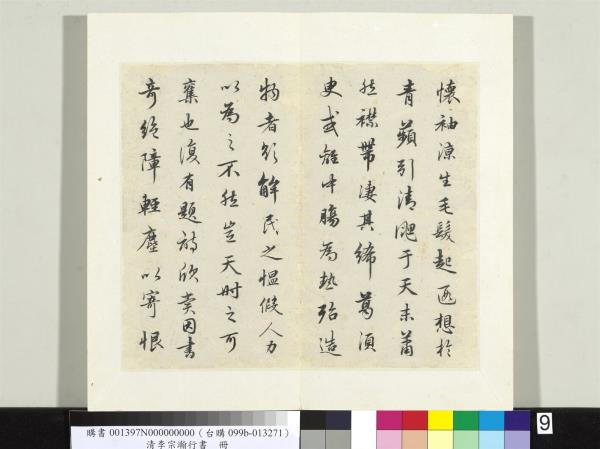 懷袖涼生毛髮起遐想於
青蘋引清颸于天末蕭
然襟帶淒其絺葛須
更或雜中腸為熱殆造
物者欲解民之慍假人力
以為之不然豈天時之可
棄也復有題詩欣賣因書
奇絕障輕塵以寄恨
9
購書 001397N000000000(台購 099b-013271)
清李宗瀚行書 冊